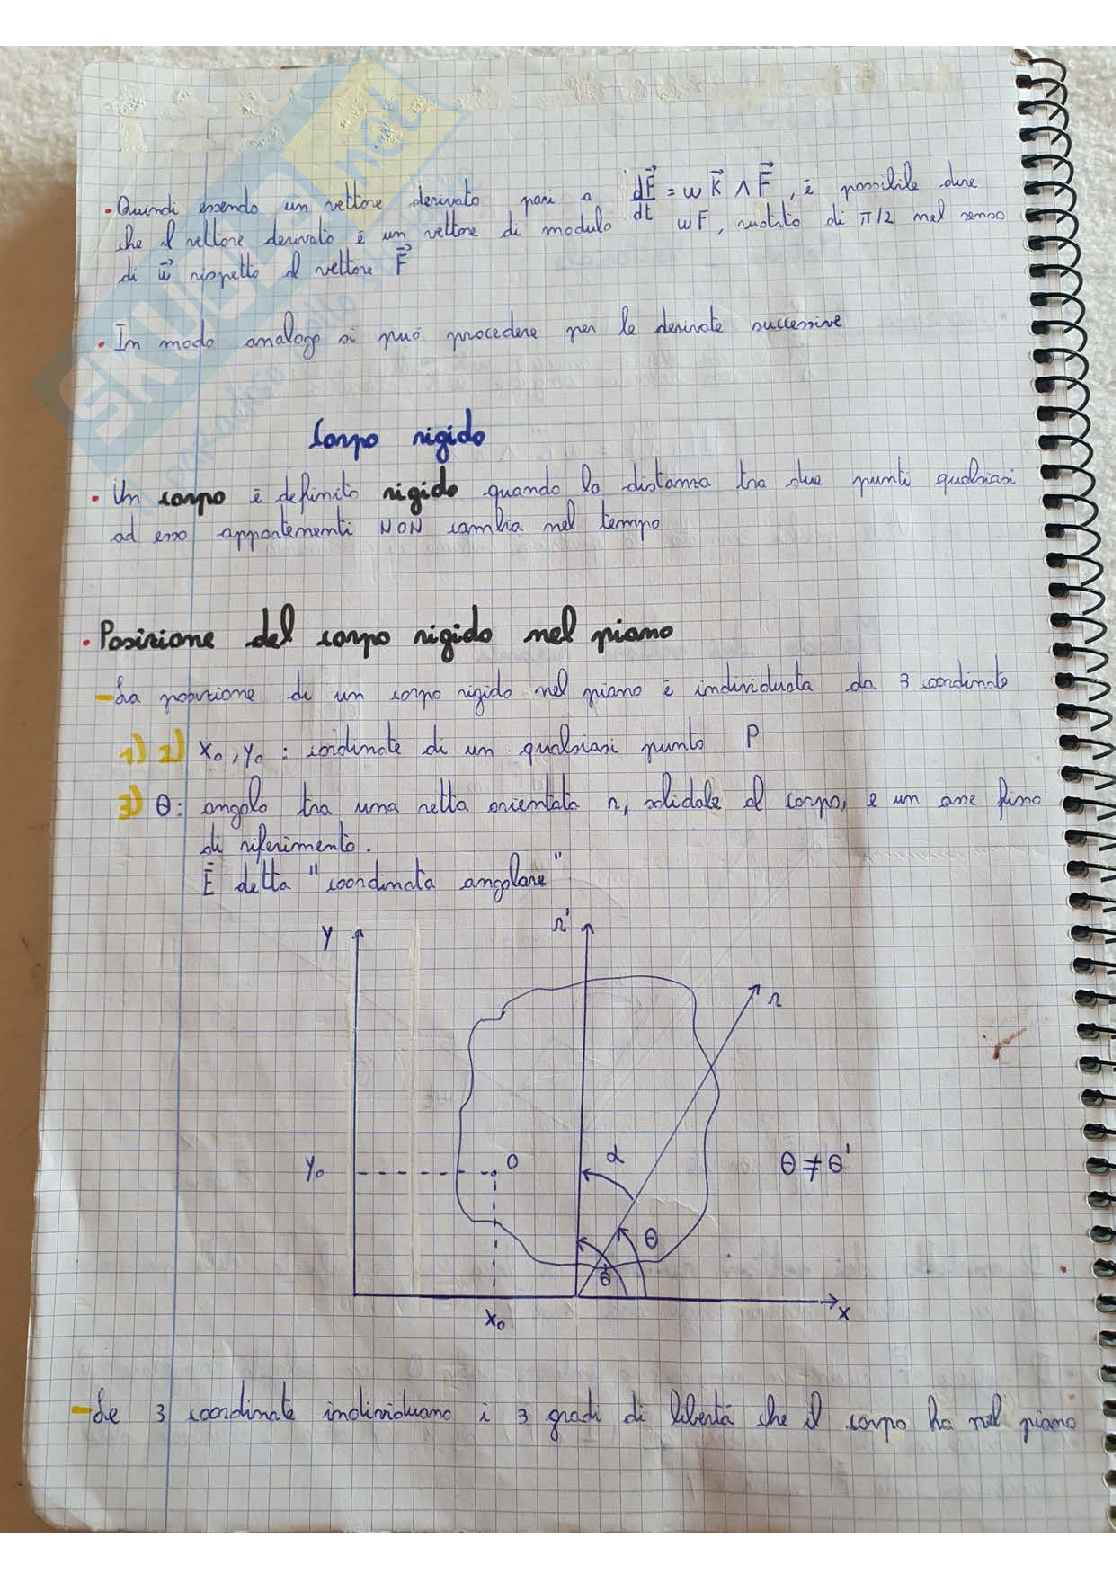 • Quindi essendo un vettore derivato pari a dF/dt = ω K ∧ F, è possibile dire
che il vettore derivato è un vettore di modulo ωF, ruotato di π/2 nel senso
di ω rispetto al vettore F
• In modo analogo si può procedere per le derivate successive
Corpo rigido
• Un corpo è definito rigido quando la distanza tra due punti qualsiasi
ad esso appartenenti NON cambia nel tempo
• Posizione del corpo rigido nel piano
- La posizione di un corpo rigido nel piano è individuata da 3 coordinate
1) 2) x₀, y₀ : coordinate di un qualsiasi punto P
3) θ: angolo tra una retta orientata r, solidale al corpo, e un asse fisso
di riferimento.
È detta "coordinata angolare"
y
r'
r
y₀
O
α
θ ≠ θ'
θ
θ'
x₀
x
- Le 3 coordinate individuano i 3 gradi di libertà che il corpo ha nel piano
SKUOLA.net